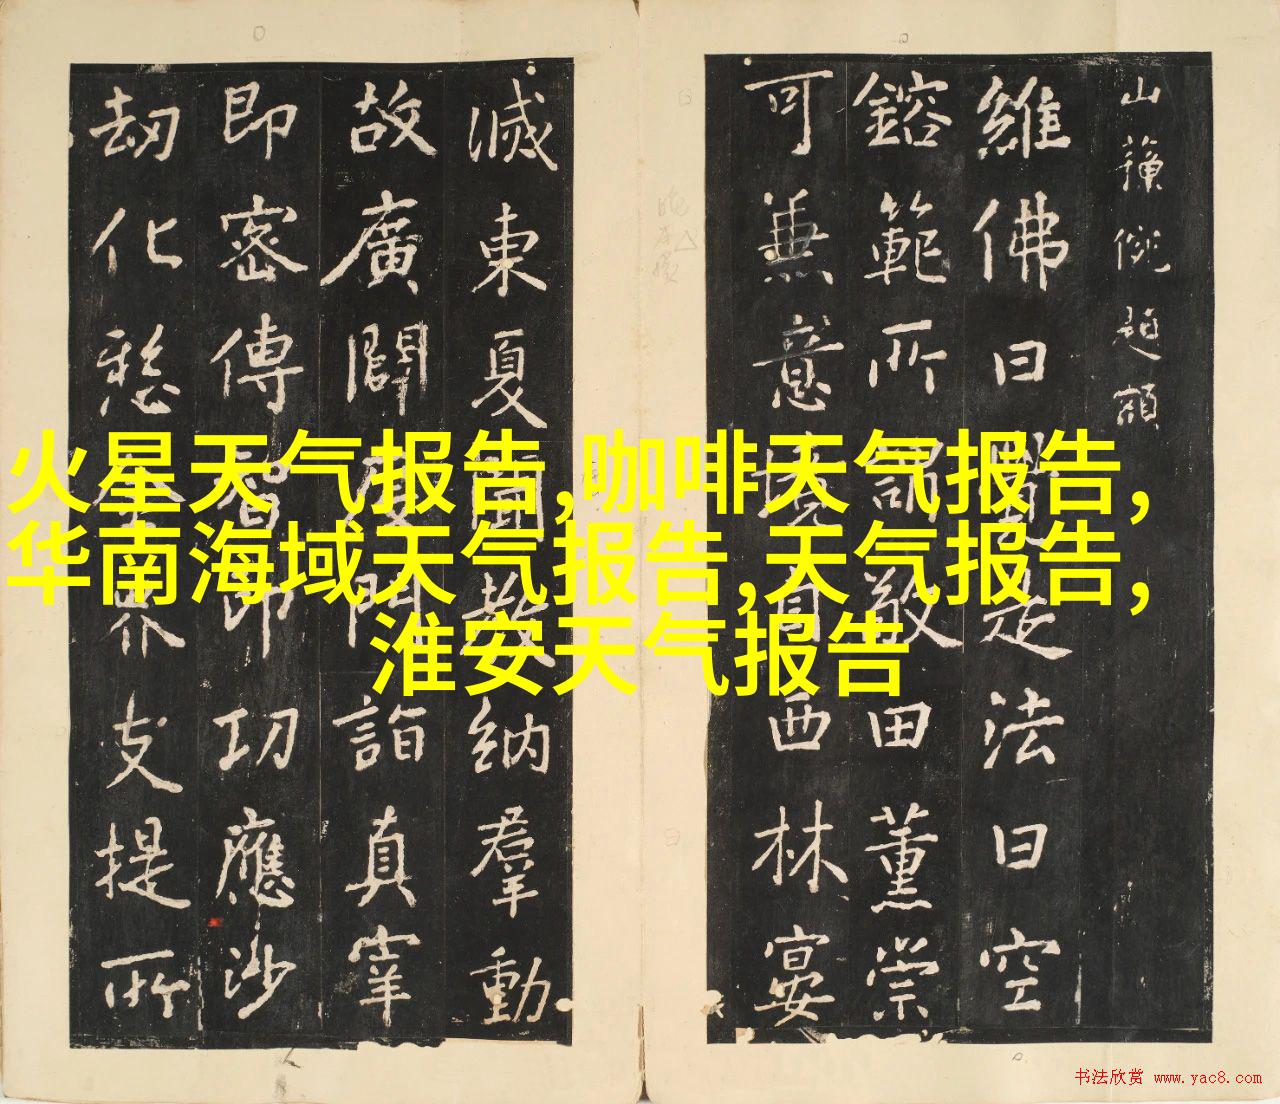 火星天气报告,咖啡天气报告,
华南海域天气报告,天气报告,
淮安天气报告
山 額
維佛曰 是法曰空
鎔範所謂敬田薰崇
可兼意境 西林宴
滅東夏圓教納羣動
故廣闢度門詣真宰
即密傳智印功應沙
劫化 界支提所
书法欣赏 www.yac8.com